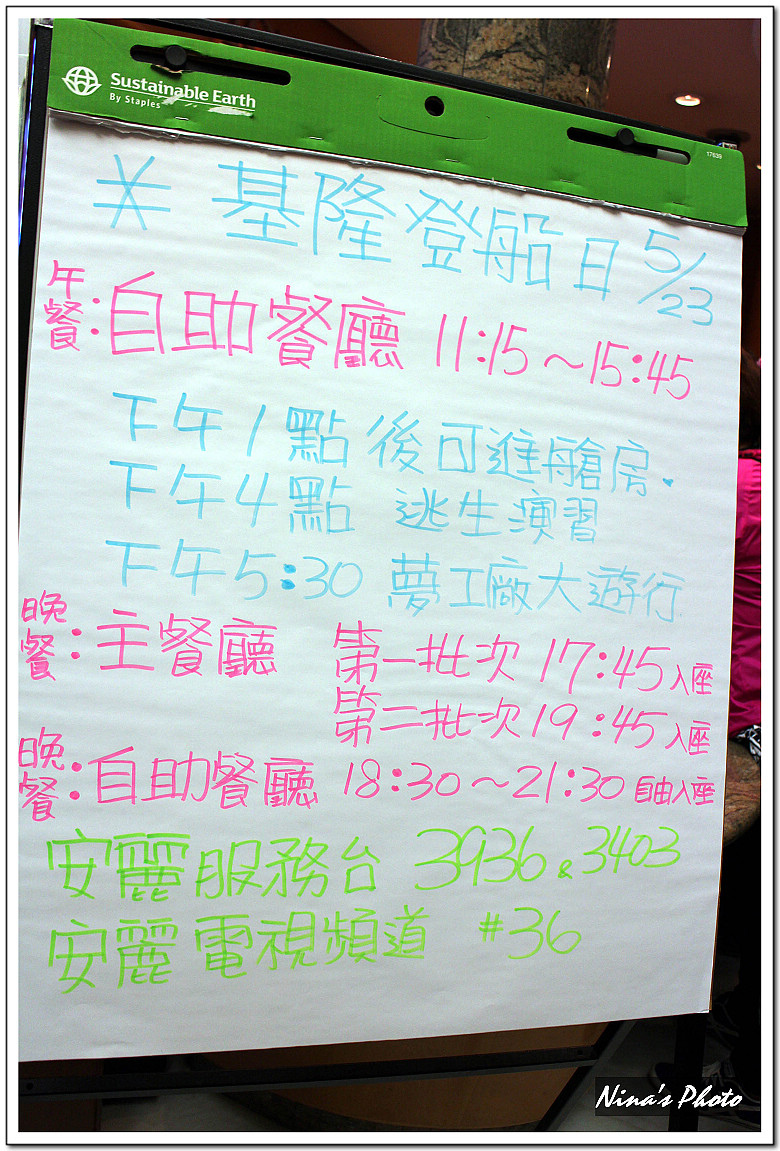 Sustainable Earth
By Staples
17639
* 基隆登船日 5/23
午餐:自助餐廳 11:15~15:45
下午1點後可進艙房.
下午4點 逃生演習
下午5:30 夢工廠大遊行
晚餐:主餐廳 第一批次 17:45入座
第二批次 19:45入座
晚餐:自助餐廳 18:30~21:30 自由入座
安麗服務台 3936 & 3403
安麗電視頻道 #36
Nina's Photo